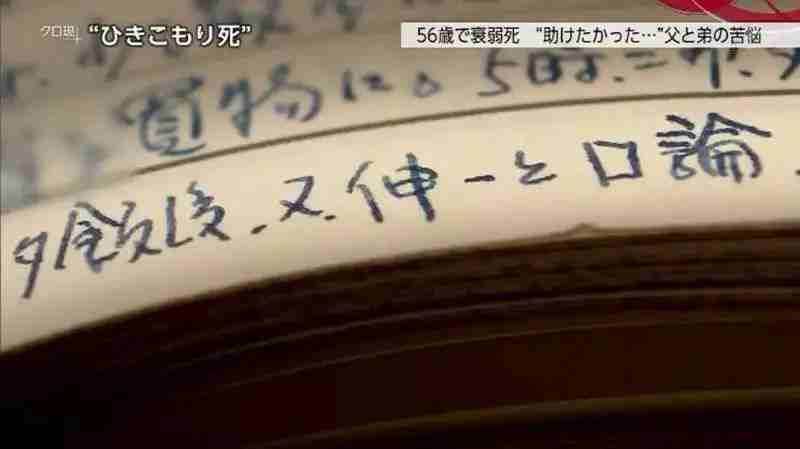 クロ現+
“ひきこもり死”
56歳で衰弱死 “助けたかった…”父と弟の苦悩
買物に。5時.ニ
夕飯後.又.伸一と口論.